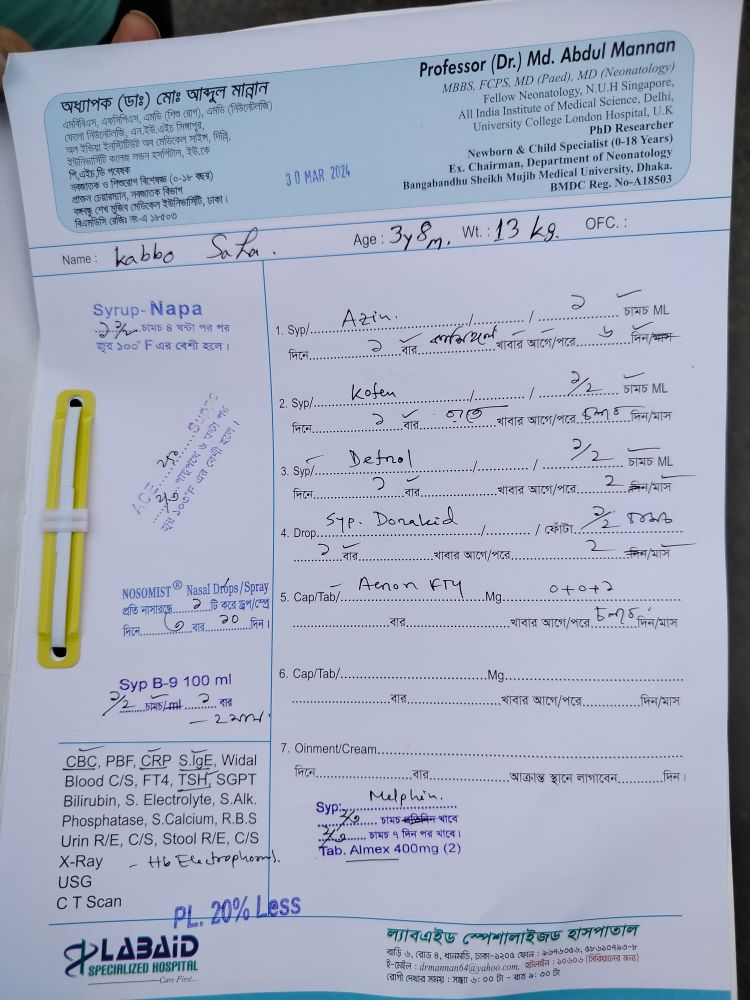 অধ্যাপক (ডাঃ) মোঃ আব্দুল মান্নান
এমবিবিএস, এফসিপিএস, এমডি (শিশু রোগ), এমডি (নিউনেটলজি)
ফেলো নিউনেটলজি, এন.ইউ.এইচ সিঙ্গাপুর,
অল ইন্ডিয়া ইনস্টিটিউট অব মেডিকেল সাইন্স, দিল্লি,
ইউনিভার্সিটি কলেজ লন্ডন হসপিটাল, ইউ.কে
পি,এইচ,ডি গবেষক
নবজাতক ও শিশুরোগ বিশেষজ্ঞ (০-১৮ বছর)
প্রাক্তন চেয়ারম্যান, নবজাতক বিভাগ
বঙ্গবন্ধু শেখ মুজিব মেডিকেল ইউনিভার্সিটি, ঢাকা।
বিএমডিসি রেজিঃ নং-এ ১৮৫০৩
30 MAR 2024
Professor (Dr.) Md. Abdul Mannan
MBBS, FCPS, MD (Paed), MD (Neonatology)
Fellow Neonatology, N.U.H Singapore,
All India Institute of Medical Science, Delhi,
University College London Hospital, U.K
PhD Researcher
Newborn & Child Specialist (0-18 Years)
Ex. Chairman, Department of Neonatology
Bangabandhu Sheikh Mujib Medical University, Dhaka.
BMDC Reg. No-A18503
Name : Kabbo Saha. Age : 3y 8m. Wt. : 13 kg. OFC. :
Syrup- Napa
চামচ ৪ ঘন্টা পর পর
জ্বর ১০০° F এর বেশী হলে।
ACE
পায়ুপথে ৬ ঘন্টা পর
জ্বর ১০৩°F এর বেশী হলে।
NOSOMIST® Nasal Drops/Spray
প্রতি নাসারন্ধ্রে ২ টি করে ড্রপ/স্প্রে
দিনে ৩ বার ১০ দিন।
Syp B-9 100 ml
১/২ চামচ/ml ১ বার
CBC, PBF, CRP S.IgE, Widal
Blood C/S, FT4, TSH, SGPT
Bilirubin, S. Electrolyte, S.Alk.
Phosphatase, S.Calcium, R.B.S
Urin R/E, C/S, Stool R/E, C/S
X-Ray - Hb Electrophoresis.
USG
C T Scan
PL. 20% Less
1. Syp/ Azin. / / ১ চামচ ML
দিনে ১ বার খাবার আগে/পরে ৬ দিন/মাস
2. Syp/ Kofen / / ১/২ চামচ ML
দিনে ১ বার রাতে খাবার আগে/পরে চলবে দিন/মাস
3. Syp/ / / ১/২ চামচ ML
দিনে ১ বার খাবার আগে/পরে ২ দিন/মাস
4. Drop Syp. / / ফোঁটা ১/২ চামচ
১ বার খাবার আগে/পরে ২ দিন/মাস
5. Cap/Tab/ Mg. 0+0+১
বার খাবার আগে/পরে চলবে দিন/মাস
6. Cap/Tab/ Mg.
বার খাবার আগে/পরে দিন/মাস
7. Oinment/Cream
দিনে বার আক্রান্ত স্থানে লাগাবেন দিন।
Syp: Melphin.
চামচ প্রতিদিন খাবে
চামচ ৭ দিন পর খাবে।
Tab. Almex 400mg (2)
LABAID
SPECIALIZED HOSPITAL
Care First...
ল্যাবএইড স্পেশালাইজড হাসপাতাল
বাড়ি ৬, রোড ৪, ধানমন্ডি, ঢাকা-১২০৫ ফোন : ৯৬৭৬৩৫৬, ৫৮৬১০৭৯৩-৮
ই-মেইল : drmannan64@yahoo.com, হটলাইন : ১০৬০৬ (সিরিয়ালের জন্য)
রোগী দেখার সময় : সন্ধ্যা ৬ : ০০ টা - রাত ৯ : ০০ টা